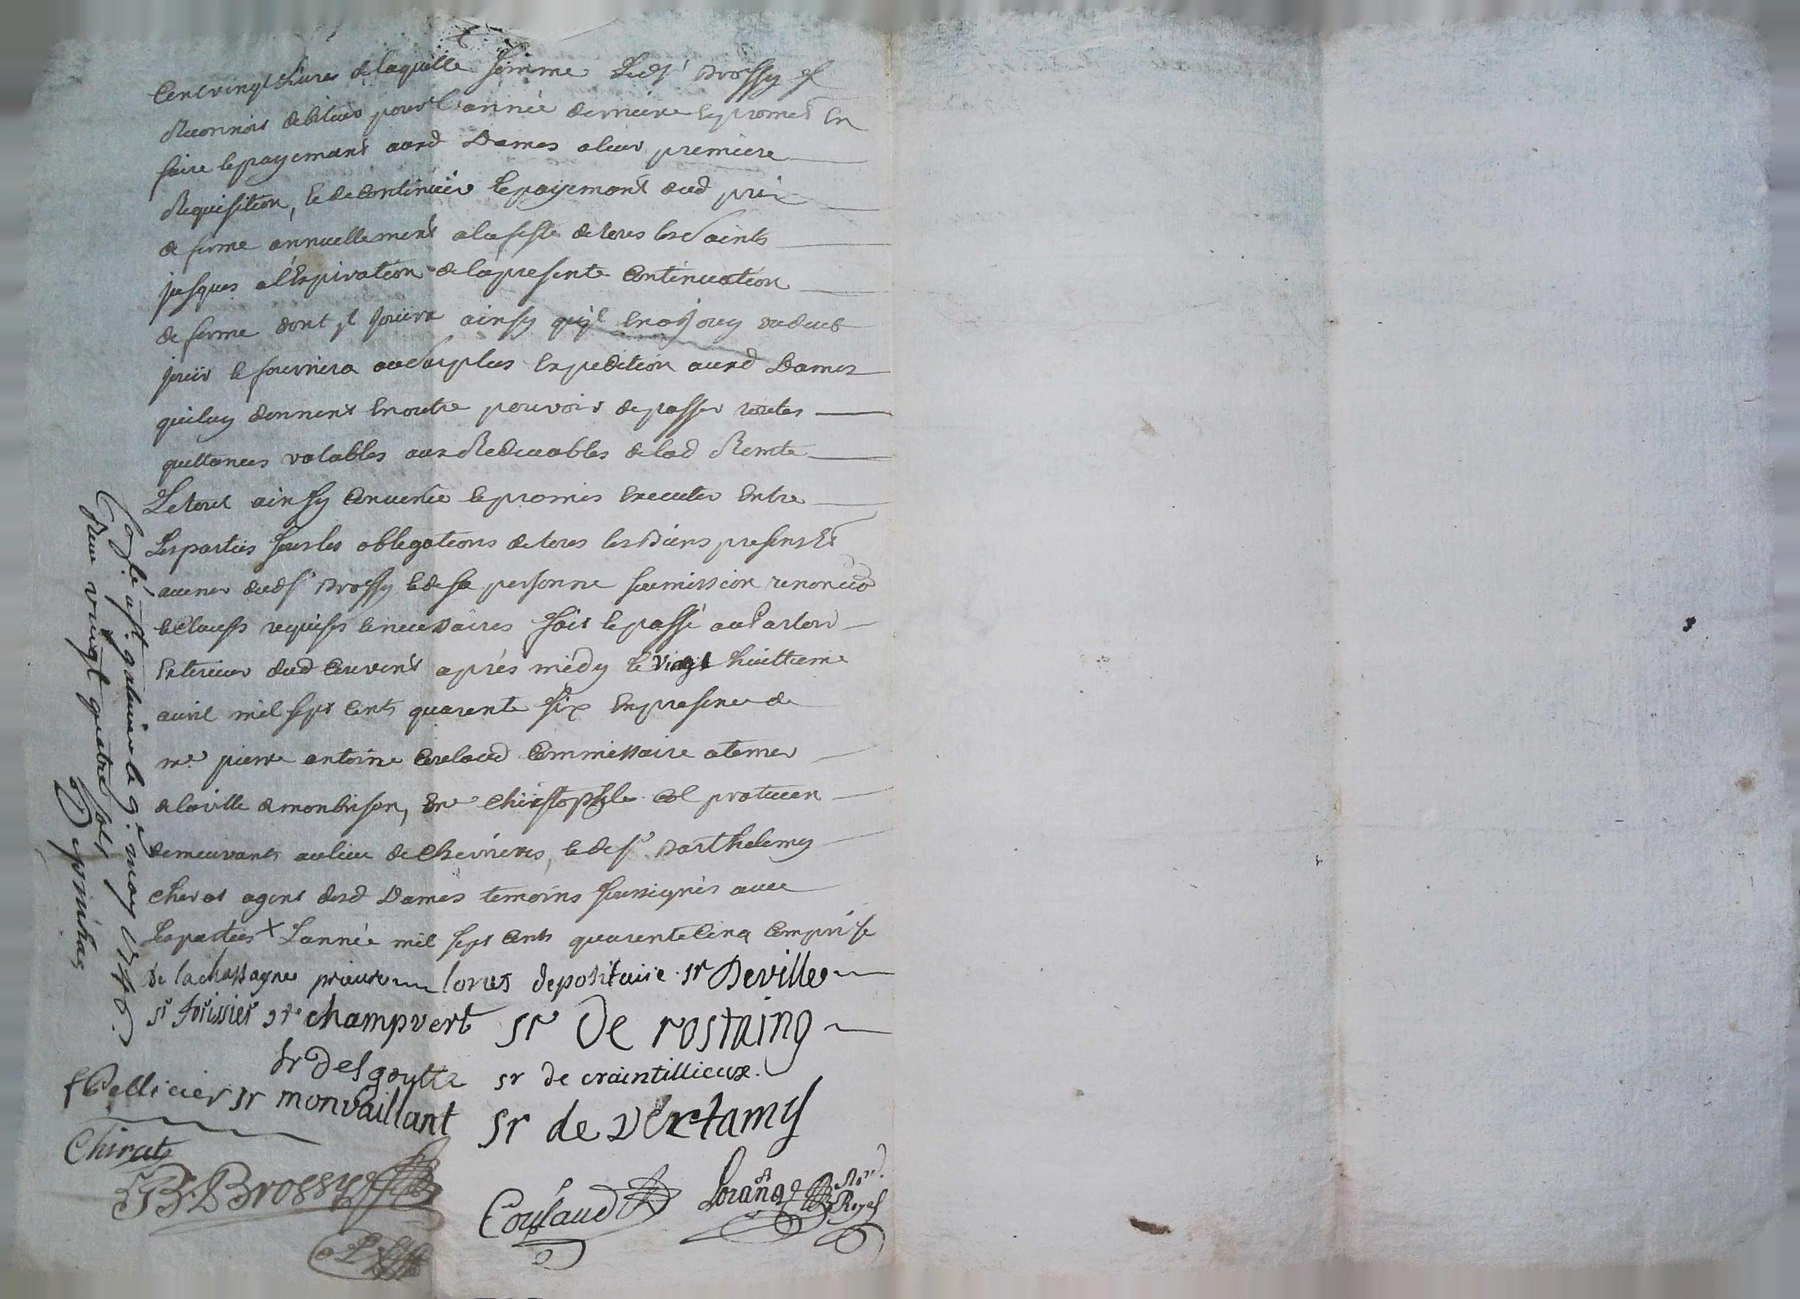 Centvingt Livres de laquelle somme Ledt Sr Brossy se
Reconnois debiteur pour l'année derniere et promet En
faire le payement ausd Dames a leur premiere
Requisition, et de continuer le payement dud prix
de ferme annuellement a la feste de tous les Saints
jusques a l'Expiration de la presente Continuation
de ferme dont jl Jouira ainsy qu'jl En a Jouy ou deub
Jouir et fournira au Surplus Expedition ausd Dames
qui luy donnent En outre pouvoir de passer toutes
quittances valables aux Redevables de lad Rente
Le tout ainsy Convenu et promis Executer Entre
Les parties Sous les obligations de tous les Biens presents Et
avenir dudt Sr Brossy et de sa personne soumission renonciaõn
et Clauses requises et necessaires fait et passé au Parloir
Exterieur dud Couvent aprés midy le vingt huittieme
avril mil sept Cents quarente six En presence de
me pierre antoine Coulaud Commissaire a terrier
de la ville de monbrison, Sr Christophle Col praticien
demeurants au lieu de Chevrieres, et de Sr Barthelemy
Chirat agent desd Dames temoins Soussignés avec
Les parties X L'année mil sept Cents quarente Cinq Comprise
De lachassagne prieure lorus depositaire sr Deville
sr forissier sr champvert sr De rostaing
sr Delgoutte sr de craintillieux.
f Pellicier sr monvaillant sr de Vertamy
Chirat
B. Brossy
Coulaud Lorange No. Royal
Col
Con.lé a st galmier le 9.e may 1746.
Receu vingt quatre sols